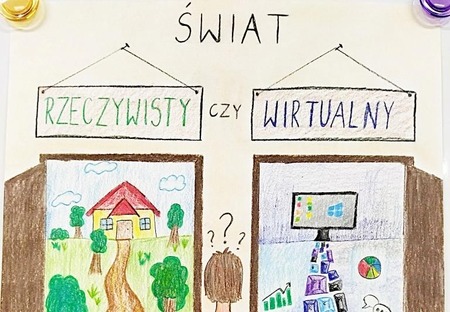 ŚWIAT
RZECZYWISTY CZY WIRTUALNY
???